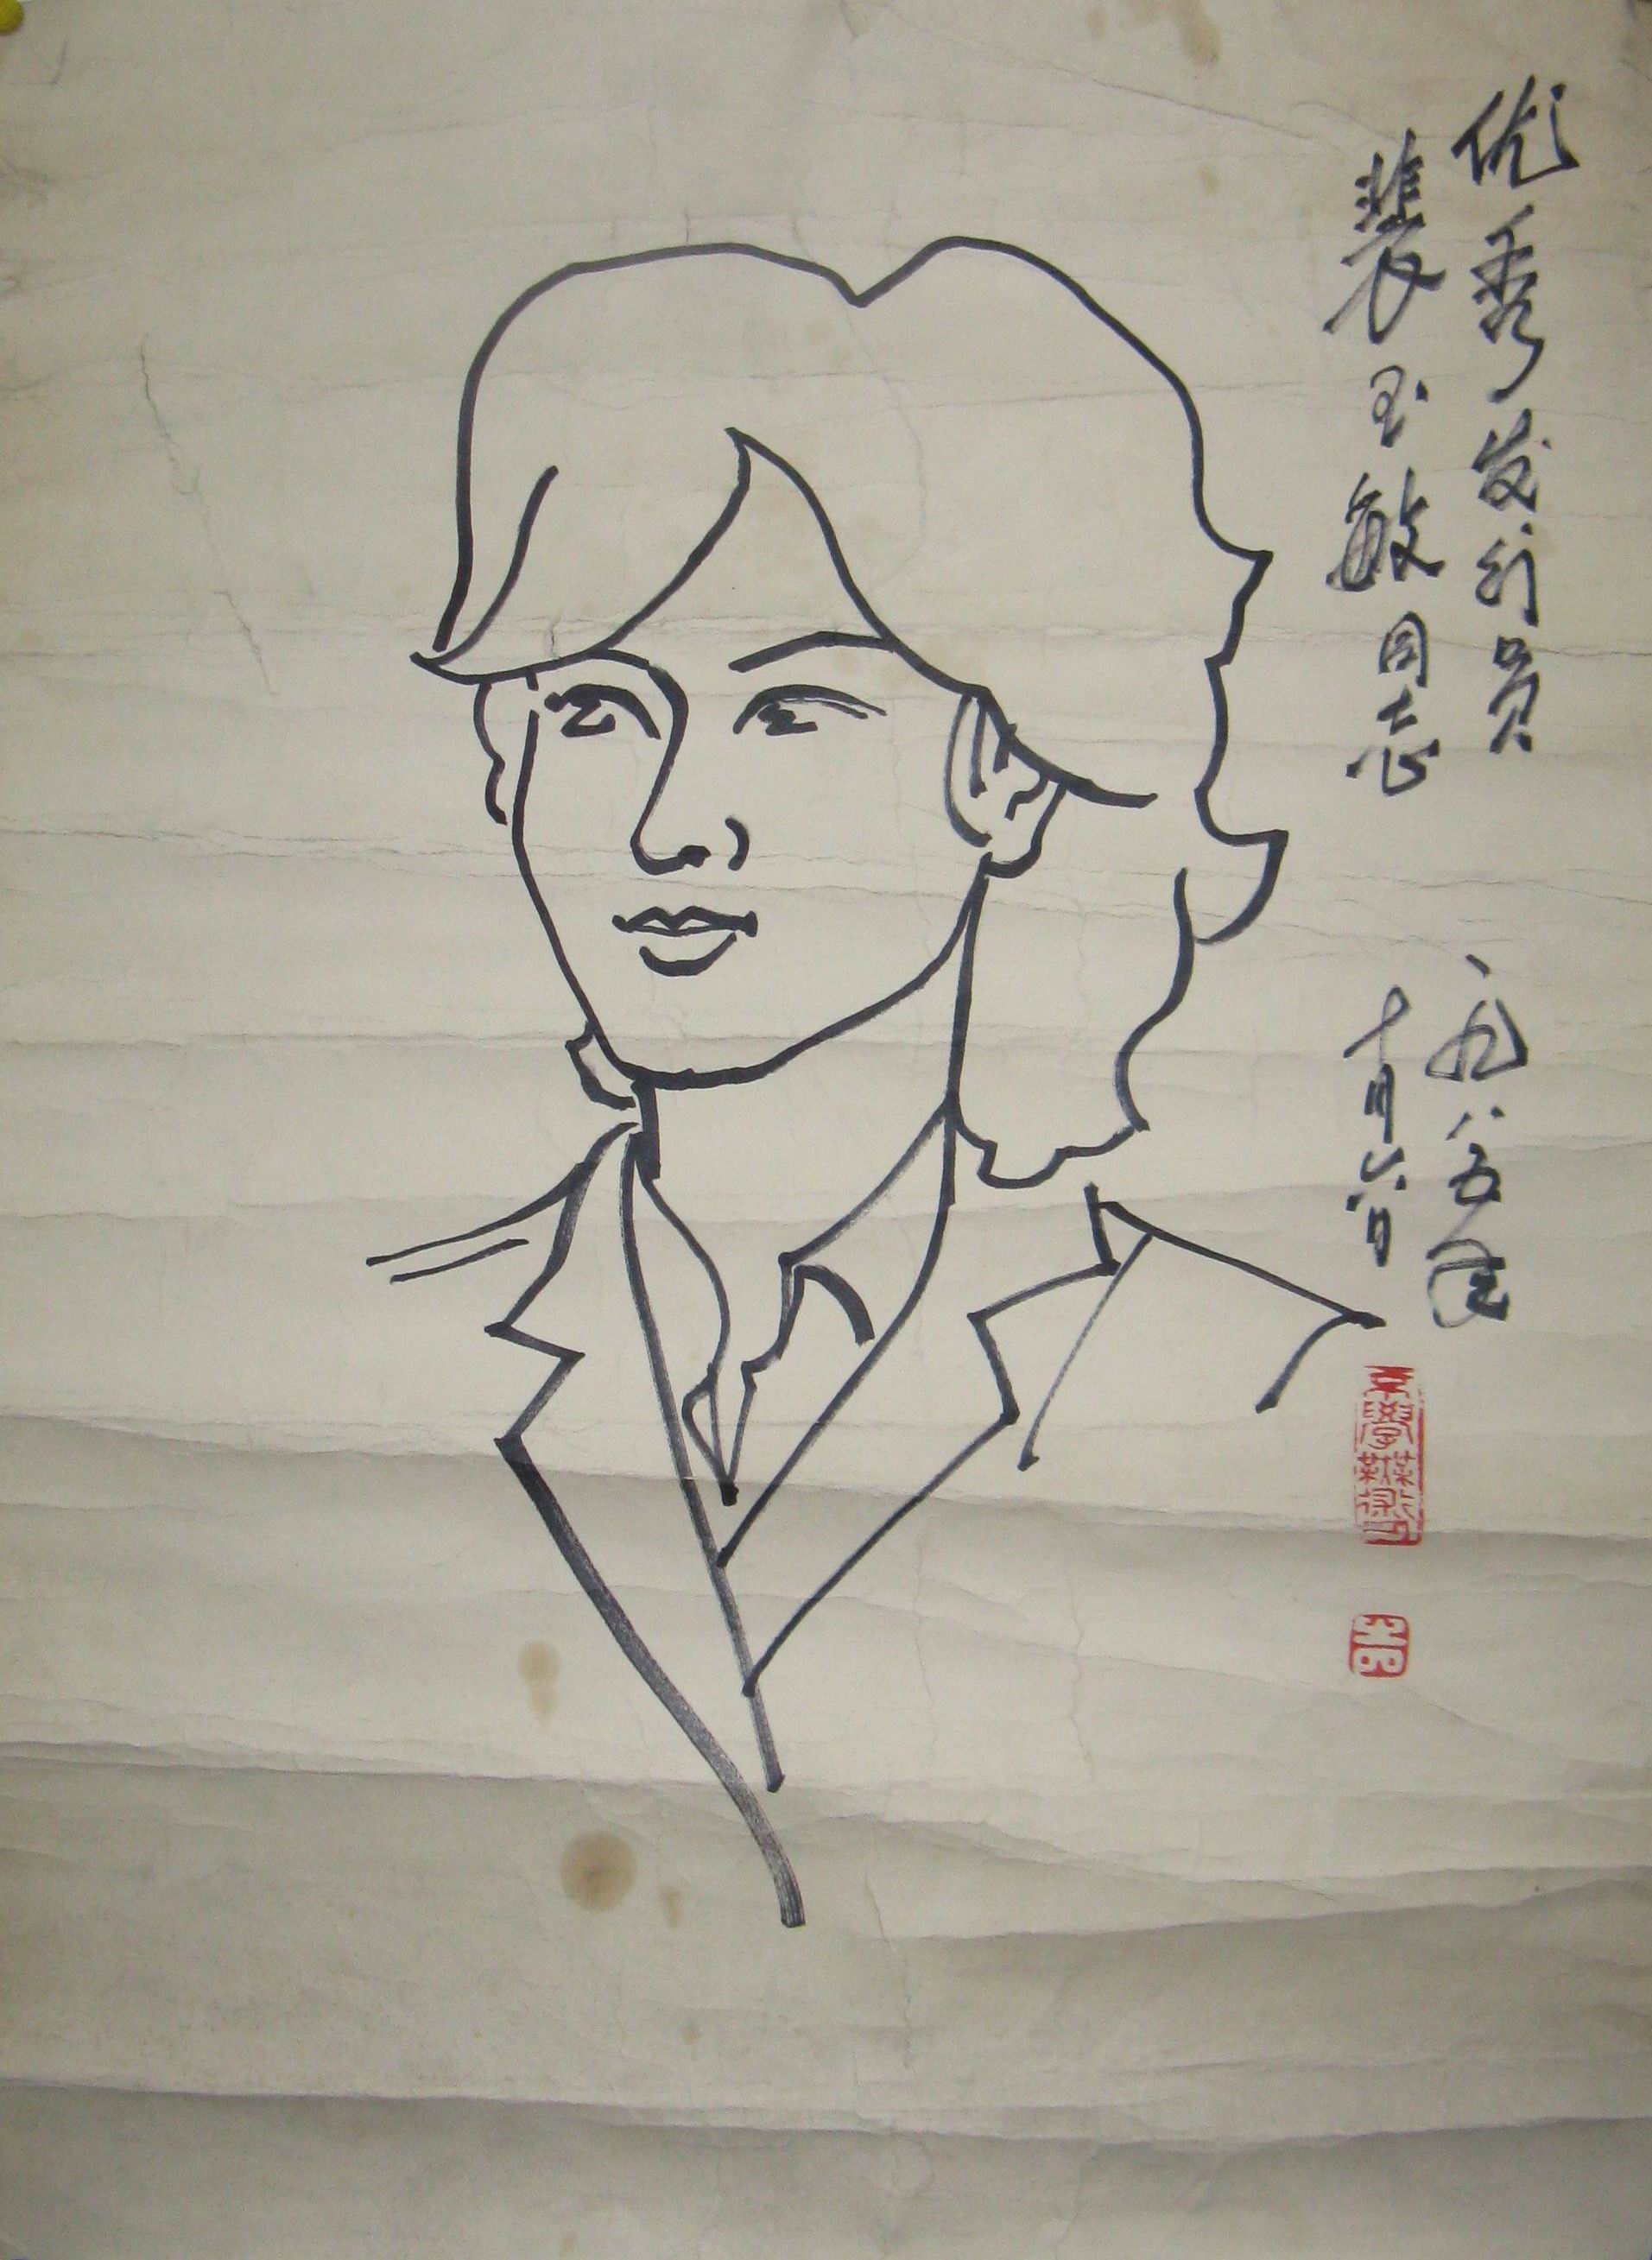 优秀发行员
裴玉敏同志
一九八五年
十月六日